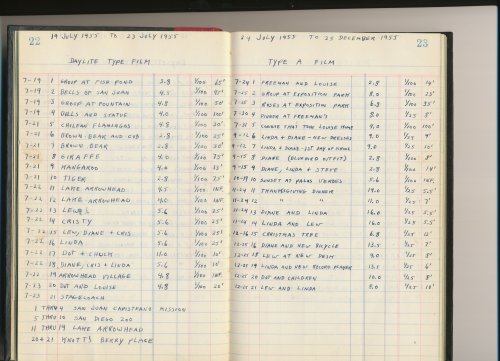 22
19 JULY 1955 TO 23 JULY 1955
DAYLITE TYPE FILM
7-19 1 GROUP AT FISH POND 2.8 1/100 65'
7-19 2 BELLS OF SAN JUAN 4.5 1/100
7-19 3 GROUP AT FOUNTAIN 4.8 1/100 50'
7-19 4 BELLS AND STATUE 4.0 1/100
7-21 5 CHILEAN FLAMINGOS 4.8 1/100 30'
7-21 6 BROWN BEAR AND CUB 2.8 1/100 25'
7-21 7 BROWN BEAR 2.8 1/100 30'
7-21 8 GIRAFFE 4.0 1/100 75'
7-21 9 KANGAROO 4.0 1/100 15'
7-21 10 TIGER 2.8 1/100 75'
7-22 11 LAKE ARROWHEAD 4.5 1/100 INF.
7-22 12 LAKE ARROWHEAD 4.0 1/100 INF.
7-22 13 LEW 5.6 1/100 25'
7-22 14 CRISTY 5.6 1/100 25'
7-22 15 LEW, DIANE + CRIS 5.6 1/100 25'
7-22 16 LINDA 5.6 1/100 25'
7-22 17 DOT + CHUM 11.0 1/100 10'
7-22 18 DIANE, CRIS + LINDA 5.6 1/100 10'
7-22 19 ARROWHEAD VILLAGE 4.8 1/100 INF.
7-23 20 DOT AND LOUISE 4.8 1/100 20'
7-23 21 STAGECOACH
1 THRU 4 SAN JUAN CAPISTRANO MISSION
5 THRU 10 SAN DIEGO ZOO
11 THRU 19 LAKE ARROWHEAD
20+21 KNOTT'S BERRY PLACE
24 JULY 1955 TO 25 DECEMBER 1955
23
TYPE A FILM
7-24 1 FREEMAN AND LOUISE 2.8 1/100 14'
7-25 2 GROUP AT EXPOSITION PARK 8.0 1/100 25'
7-25 3 ROSES AT EXPOSITION PARK 6.8 1/100 35'
7-30 4 AT FREEMAN'S 8.0 1/25 8'
7-31 5 THAT TOOK LOUISE HOME 9.0 1/100 100'
9-12 6 LINDA + DIANE - NEW DRESSES 9.0 1/25 9'
9-12 7 LINDA + DIANE - 1ST DAY OF SCHOOL 9.0 1/25 10'
9-15 8 DIANE OUTFIT) 2.8 1/100 8'
9-18 9 DIANE, LINDA + STEVE 2.8 1/100 14'
10-19 10 SUNSET AT PALOS VERDES 5.6 1/100 INF.
11-24 11 THANKSGIVING DINNER 19.0 1/25 5.5'
11-24 12 " " 11.0 1/25 7'
11-24 13 DIANE AND LINDA 16.0 1/25 5.5'
11-24 14 LINDA AND LEW 16.0 1/25 5.5'
12-16 15 CHRISTMAS TREE 6.8 1/25 12'
12-25 16 DIANE AND NEW BICYCLE 13.5 1/25 7'
12-25 18 LEW AT NEW DESK 9.0 1/25 8'
12-25 19 LINDA AND NEW RECORD PLAYER 13.5 1/25 6'
12-25 20 DOT AND CHILDREN 16.0 1/25 8'
12-25 21 LEW AND LINDA 9.0 1/25 10'